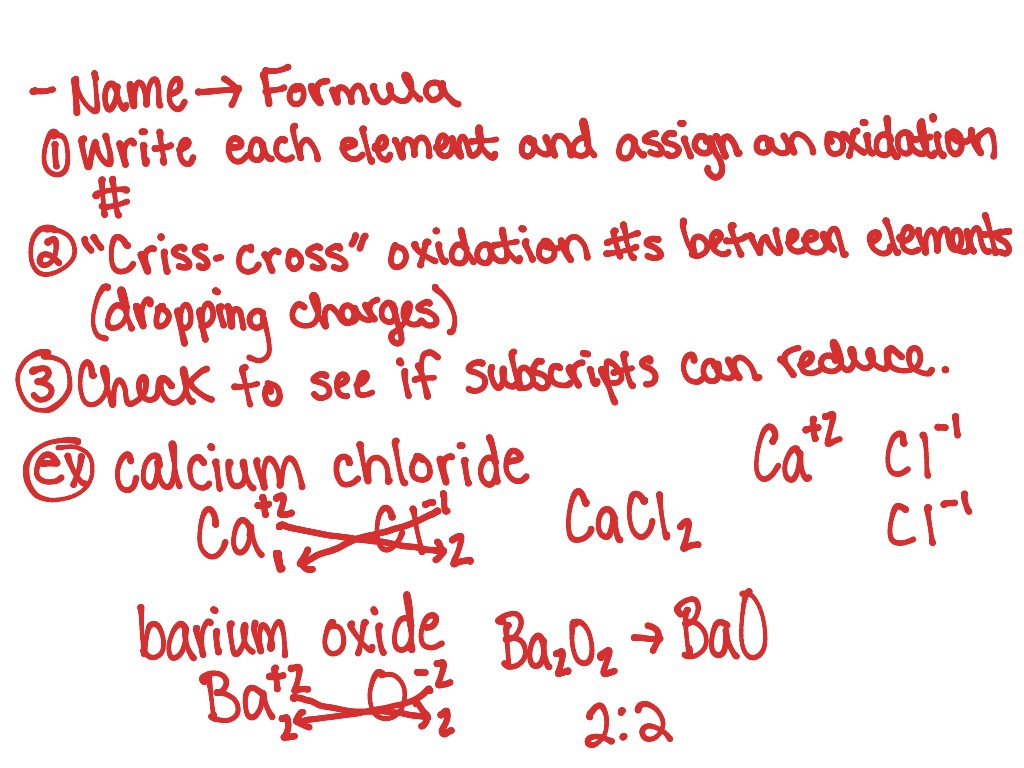 - Name → Formula
① Write each element and assign an oxidation
#
② "Criss-cross" oxidation #s between elements
(dropping charges)
③ Check to see if subscripts can reduce.
ex calcium chloride
Ca⁺² Cl⁻¹
Cl⁻¹
Ca⁺² Cl⁻¹
1 2
CaCl₂
barium oxide
Ba₂O₂ → BaO
Ba⁺² O⁻²
2 2
2:2